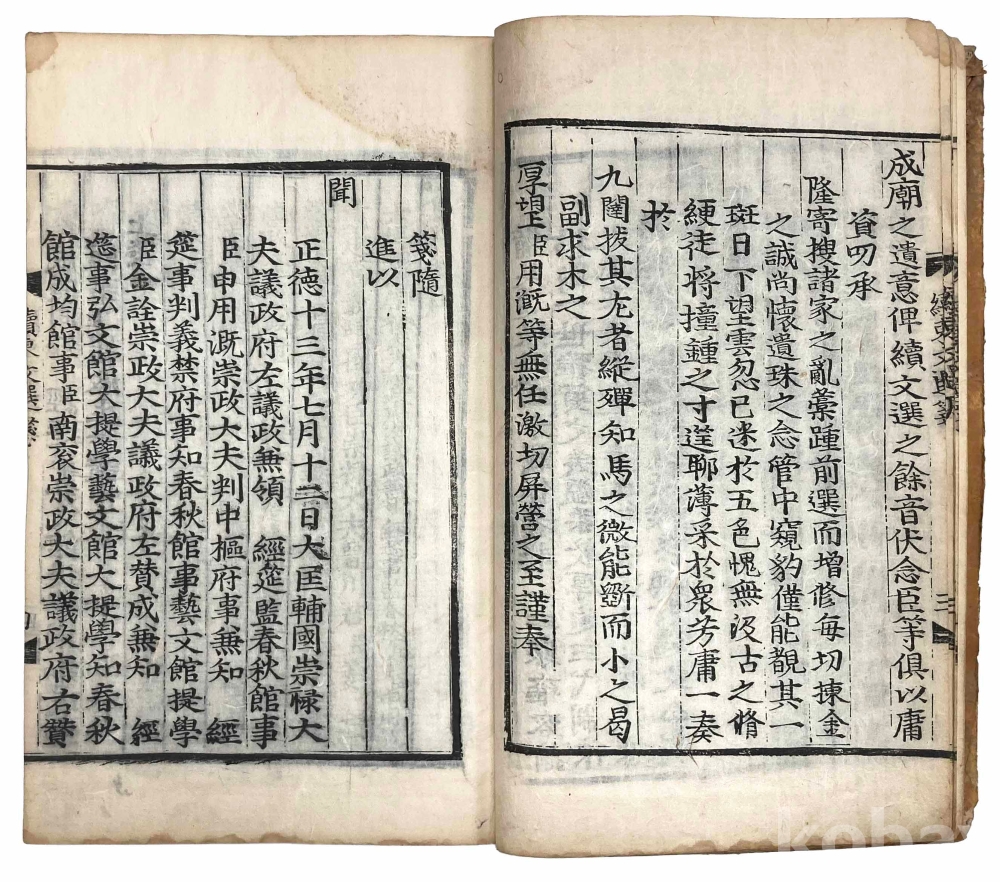 成廟之遺意俾續文選之餘音伏念臣等俱以庸
資叨承
隆寄搜諸家之亂藁踵前選而增修每切揀金
之誠尚懷遺珠之念管中窺豹僅能覩其一
斑日下望雲忽已迷於五色愧無汲古之脩
綆徒將撞鍾之寸莛聊薄采於衆芳庸一奏
於
九閽拔其尤者縱殫知馬之微能斲而小之曷
副求木之
厚望臣用漑等無任激切屛營之至謹奉
箋隨
進以
聞
正德十三年七月十二日大匡輔國崇祿大
夫議政府左議政兼領 經筵監春秋館事
臣申用漑崇政大夫判中樞府事兼知 經
筵事判義禁府事知春秋館事藝文館提學
臣金詮崇政大夫議政府左賛成兼知 經
筵事弘文館大提學藝文館大提學知春秋
館成均館事臣南袞崇政大夫議政府右贊
續東文選箋